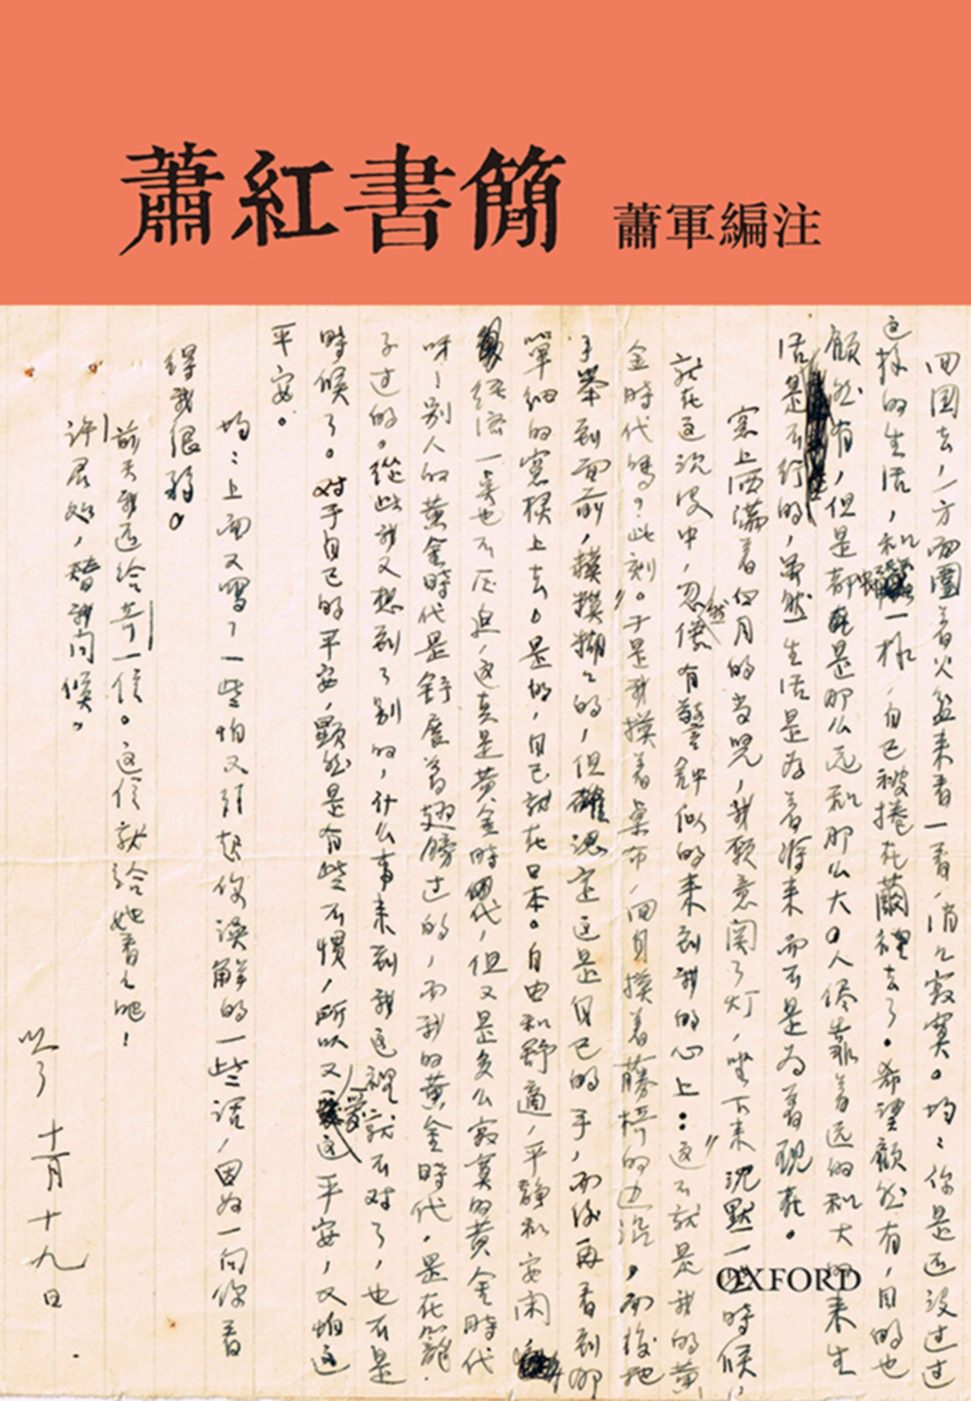 蕭紅書簡
蕭軍編注
回國去，一方面圍着火盆来看一看，消之寂寞。均：你是还没过过
这样的生活，和蛹一样，自己被捲在繭裡去了。希望顧然有，目的也
顧然有，但是都是那么远和那么大。人尽靠着远的和大的来生
活是不行的，虽然生活是为着将来而不是为着现在。
窓上洒满着白月的当児，我願意関了灯，坐下来沈默一些時候，
就在这沈没中，忽然有警鐘似的来到我的心上：“这不就是我的黄
金時代嗎？此刻。”于是我摸着桌布，回身摸着藤椅的边沿，而後把
手举到面前，模模糊糊的，但確認定这是自己的手，而後再看到那
單細的窓櫺上去。是的，自己就在日本。自由和舒適，平静和安闲，
经济一点也不压迫，这真是黄金時代，但又是多么寂寞的黄金時代
呀！别人的黄金時代是舒展着翅膀过的，而我的黄金時代，是在籠
子过的。從此我又想到了别的，什么事来到我这裡就不对了，也不是
時候了。对于自己的平安，顯然是有些不慣，所以又爱这平安，又怕这
平安。
均：上面又寫了一些怕又引起你误解的一些话，因为一向你看
得我很弱。
前天我还给奇一信。这信就给她看看吧！
许君处，替我问候。
吟
十一月十九日
OXFORD